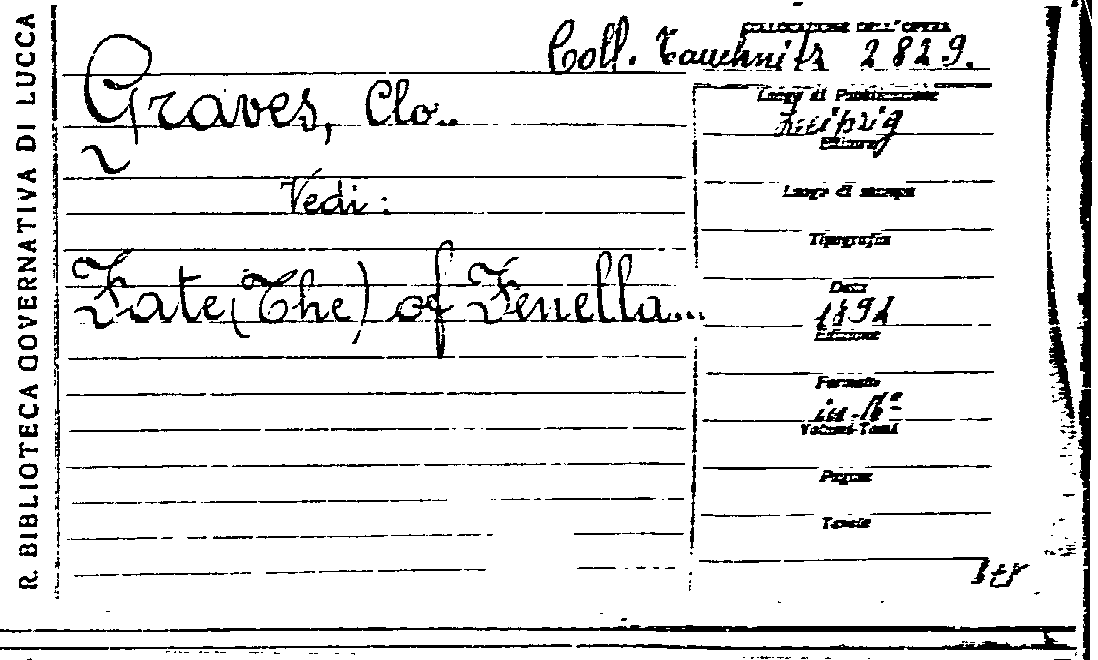 R. BIBLIOTECA GOVERNATIVA DI LUCCA
COLLOCAZIONE DELL'OPERA
Coll. Tauchnitz 2829.
Graves, Clo..
Vedi:
Fate (The) of Fenella...
Luogo di Pubblicazione
Leipzig
Editore
Luogo di stampa
Tipografia
Data
1892
Edizione
Formato
in-16°
Volumi-Tomi
Pagine
Tavole